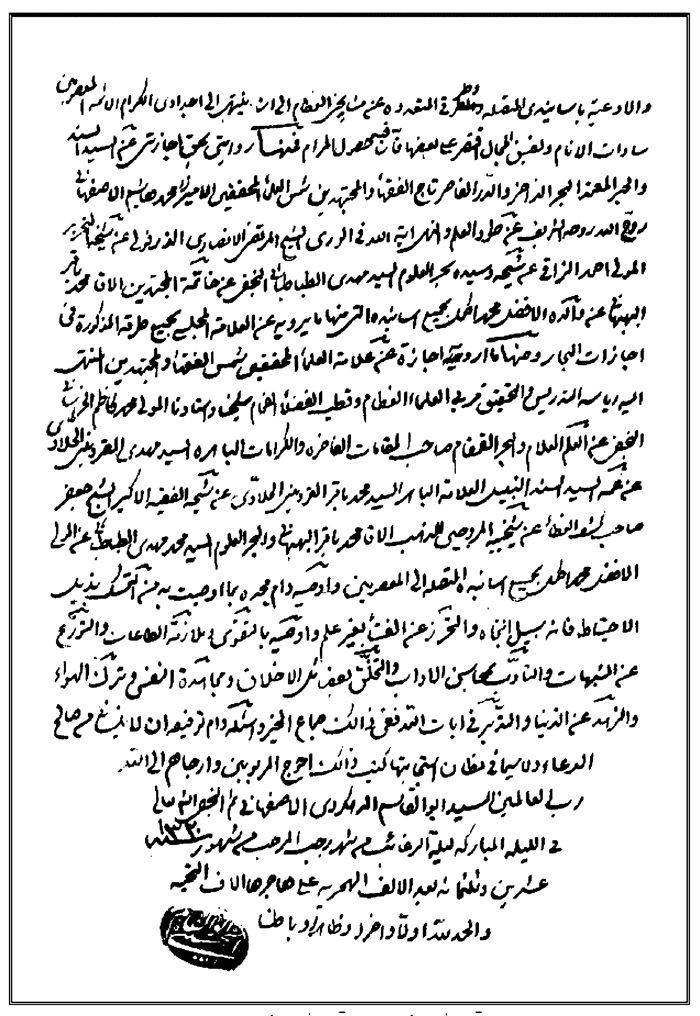 والادعية باسانيدى المتصله وطرقى المتعدده عن مشايخى العظام الى ان ينتهى الى اجدادى الكرام الائمه المعصومين
سادات الانام ولضيق المجال اقتصر على بعضها فان فيه حصول المرام فمنها ما روايتى بحق اجازتى عن السيد السند
والحبر المعتمد البحر الزاخر والدر الفاخر تاج الفقهاء والمجتهدين شمس العلماء المحققين الامير محمد هاشم الاصفهانى
روح الله روحه الشريف عن طود العلم والنهى اية الله فى الورى الشيخ المرتضى الانصارى الدزفولى عن شيخه النحرير
المولى احمد النراقى عن شيخه وسيده بحر العلوم السيد مهدى الطباطبائى النجفى عن خاتمة المجتهدين الاقا محمد باقر
البهبهانى عن والده الافضل محمد اكمل بجميع اسانيده التى منها ما يرويه عن العلامة المجلسى بجميع طرقه المذكورة فى
اجازات البحار ومنها ما ارويه اجازة عن علامة العلماء المحققين شمس الفقهاء والمجتهدين المنتهى
اليه رياسة التدريس والتحقيق مربى العلماء العظام وقطب الفضلاء الفخام شيخنا واستادنا المولى محمد كاظم الخراسانى
النجفى عن العلم العلام والبحر القمقام صاحب المقامات الفاخره والكرامات الباهره السيد مهدى القزوينى الحلاوى
عن عمه السيد السند النبيل العلامة الباهر السيد محمد باقر القزوينى الحلاوى عن شيخه الفقيه الاكبر الشيخ جعفر
صاحب كشف الغطاء عن شيخيه المروجين للمذهب الاقا محمد باقر البهبهانى والبحر العلوم السيد محمد مهدى الطباطبائى عن المولى
الافضل محمد اكمل بجميع اسانيده المتصله الى المعصومين واوصيه دام مجده بما اوصيت به من التمسك بذيل
الاحتياط فانه سبيل النجاه والتحرز عن الفتيا بغير علم واوصيه بالتقوى وملازمة الطاعات والتورع
عن الشبهات والتادب بمحاسن الاداب والتخلق بفضائل الاخلاق ومجاهدة النفس وترك الهواء
والزهد عن الدنيا والتدبر فى ايات الله ففى ذالك جماع الخير واسئله دام توفيقه ان لا ينسانى من صالح
الدعاء ولا سيما فى مظان استجابتها كتب ذالك احوج المربوبين وارجاهم الى الله
رب العالمين السيد ابو القاسم الدهكردى الاصفهانى ثم النجفى
فى الليلة المباركه ليلة الرغائب من شهر رجب المرجب من شهور سنه ١٣٢٠
عشرين وثلثمائه بعد الالف الهجريه على هاجرها الاف التحيه
والحمد لله اولا واخرا وظاهرا وباطنا